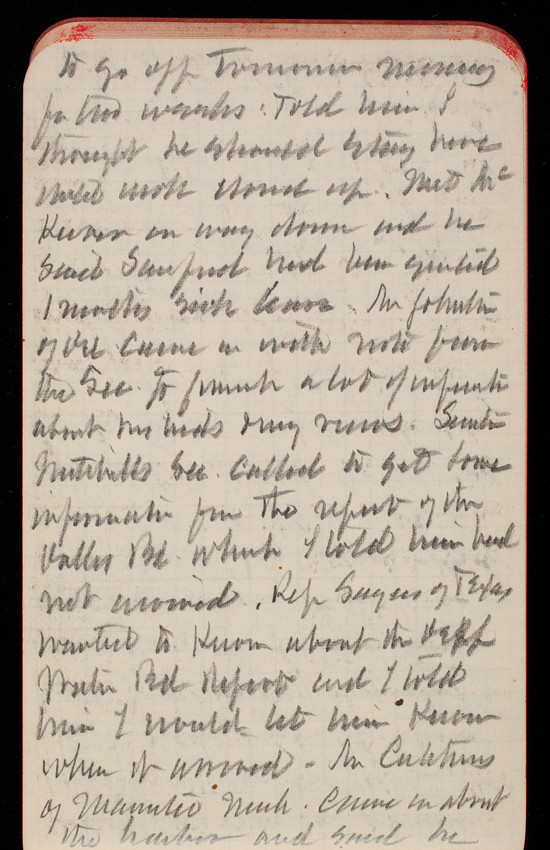 to go off tomorrow morning
for two weeks. Told him I
thought he should stay here
until work closed up. Met Mc
Keever on way down and he
said Sanford had been granted
1 months sick leave. Mr Johnston
of Del came in with note from
the Sec to furnish a lot of
about my views. Senator
Mitchells Sec. called to get some
information from the report of the
Bd. which I told him had
not arrived. Rep Sayers of Texas
wanted to know about the deep
Water Bd Report and I told
him I would let him know
when it arrived - Mr
of Manistee Mich. came in about
the harbor and said he